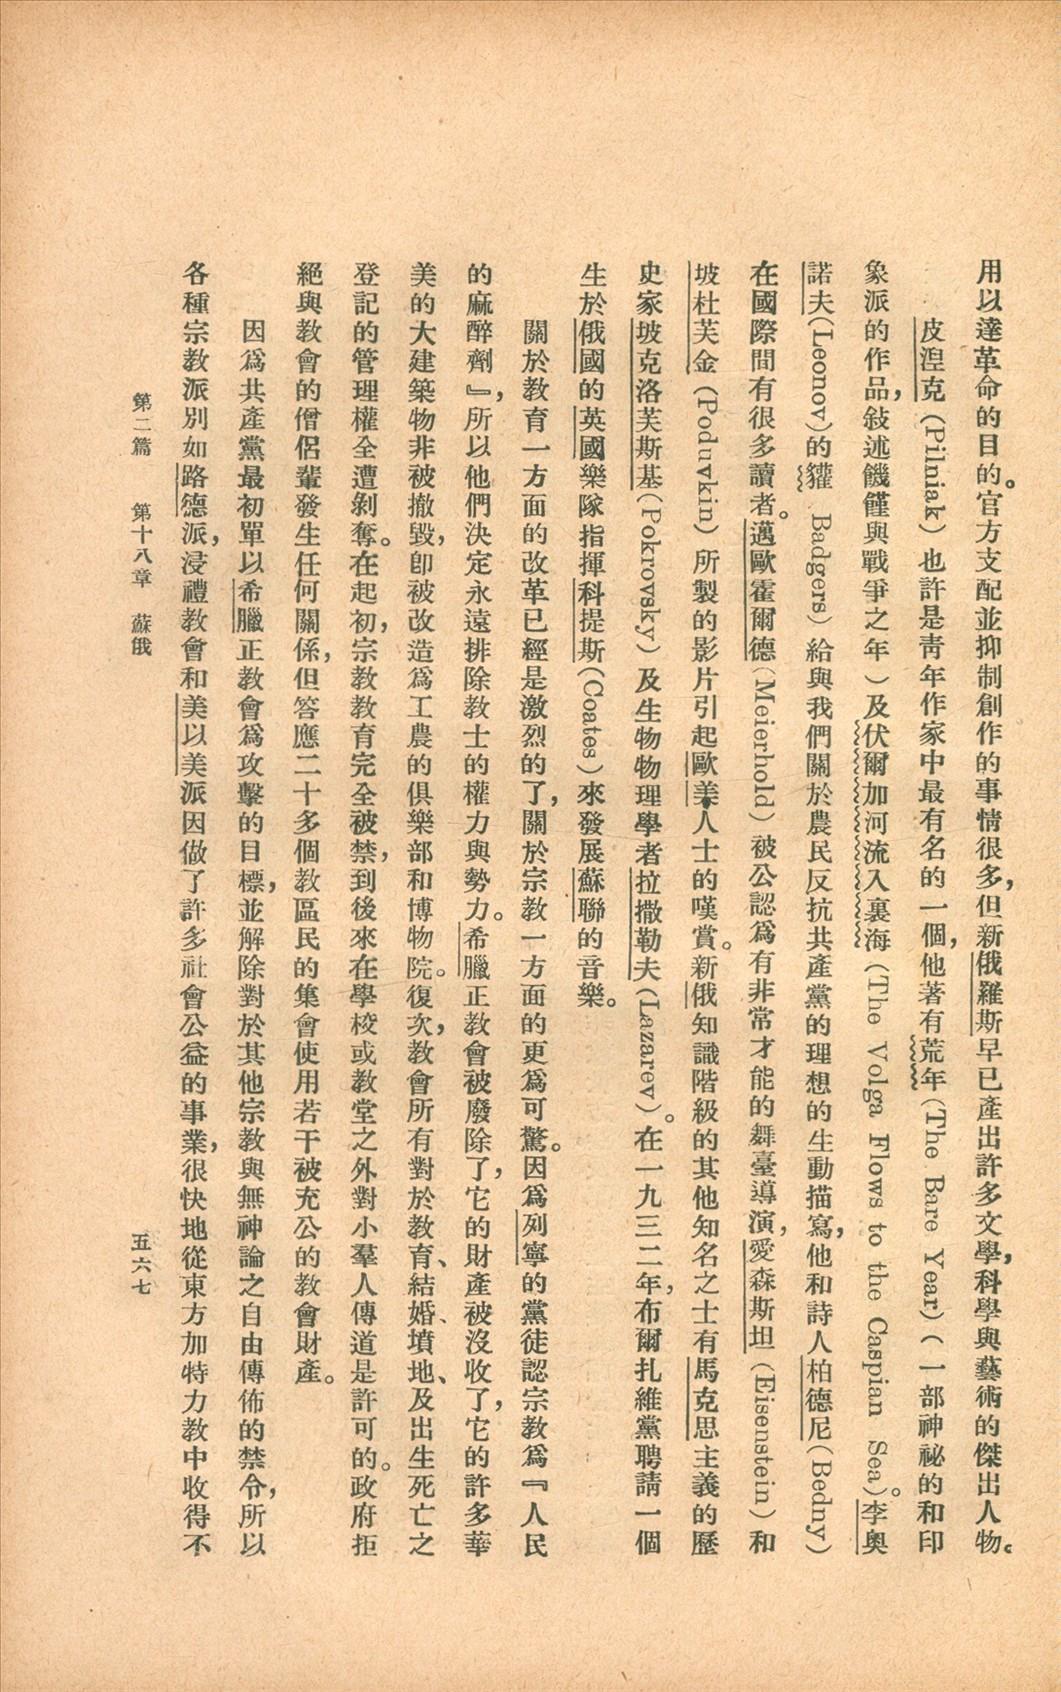 用以達革命的目的。官方支配並抑制創作的事情很多，但新俄羅斯早已產出許多文學，科學與藝術的傑出人物。
皮湼克（Pilniak）也許是靑年作家中最有名的一個，他著有荒年（The Bare Year）（一部神祕的和印
象派的作品，敍述饑饉與戰爭之年）及伏爾加河流入裏海（The Volga Flows to the Caspian Sea）。李奧
諾夫（Leonov）的獾 Badgers）給與我們關於農民反抗共產黨的理想的生動描寫，他和詩人柏德尼（Bedny）
在國際間有很多讀者。邁歐霍爾德（Meierhold）被公認爲有非常才能的舞臺導演，愛森斯坦（Eisenstein）和
坡杜芙金（Poduvkin）所製的影片引起歐美人士的嘆賞。新俄知識階級的其他知名之士有馬克思主義的歷
史家坡克洛芙斯基（Pokrovsky）及生物物理學者拉撒勒夫（Lazarev）。在一九三二年，布爾扎維黨聘請一個
生於俄國的英國樂隊指揮科提斯（Coates）來發展蘇聯的音樂。
關於教育一方面的改革已經是激烈的了，關於宗教一方面的更爲可驚。因爲列寧的黨徒認宗教爲『人民
的麻醉劑』，所以他們決定永遠排除教士的權力與勢力。希臘正教會被廢除了，它的財產被沒收了，它的許多華
美的大建築物非被撤毀，卽被改造爲工農的俱樂部和博物院。復次，教會所有對於教育、結婚、墳地、及出生死亡之
登記的管理權全遭剝奪。在起初，宗教教育完全被禁，到後來在學校或教堂之外對小羣人傳道是許可的。政府拒
絕與教會的僧侶輩發生任何關係，但答應二十多個教區民的集會使用若干被充公的教會財產。
因爲共產黨最初單以希臘正教會爲攻擊的目標，並解除對於其他宗教與無神論之自由傳佈的禁令，所以
各種宗教派別如路德派，浸禮教會和美以美派因做了許多社會公益的事業，很快地從東方加特力教中收得不
第二篇 第十八章 蘇俄
五六七